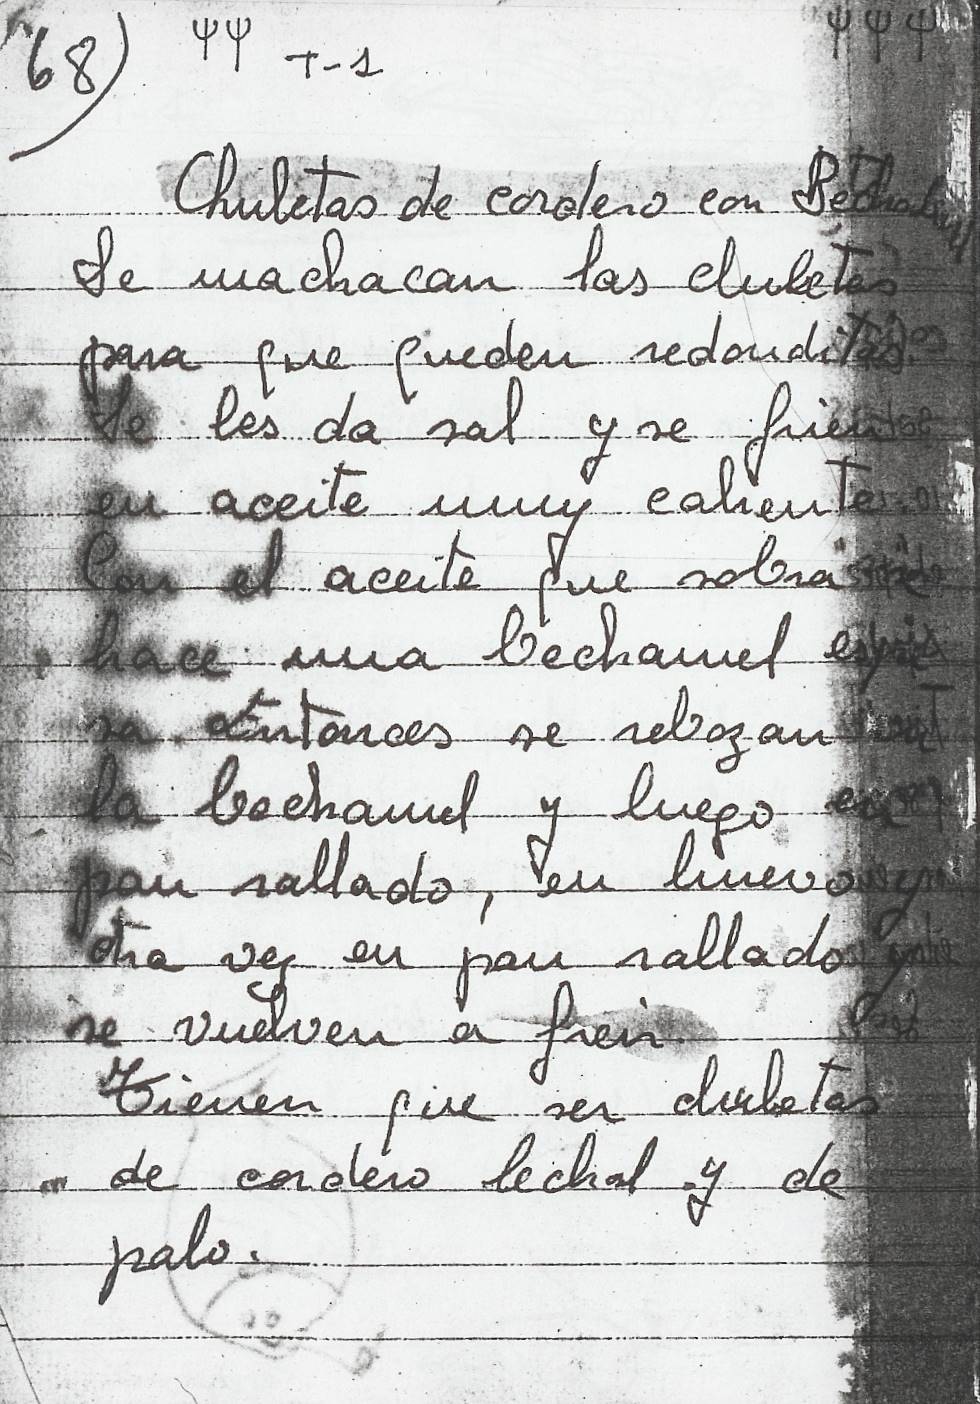 68) ψψ T-1 ψψψ
Chuletas de cordero con Bechamel
Se machacan las chuletas
para que queden redonditas.
Se les da sal y se frien
en aceite muy caliente.
Con el aceite que sobra se
hace una bechamel espe
sa. Entonces se rebozan en
la bechamel y luego en
pan rallado, en huevo y
otra vez en pan rallado y
se vuelven a freir.
Tienen que ser chuletas
de cordero lechal y de
palo.